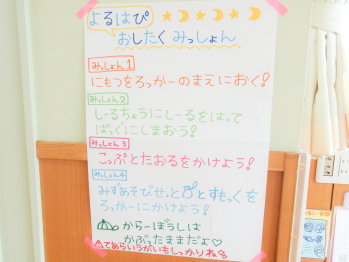 よるはぴ
おしたくみっしょん
みっしょん1
にもつをろっかーのまえにおく!
みっしょん2
しーるちょうにしーるをはって
ばっぐにしまおう!
みっしょん3
こっぷとたおるをかけよう!
みっしょん4
みずあそびせっととすもっくを
ろっかーにかけよう!
からーぼうしは
かぶったままだよ♡
てあらいうがいもしっかりね